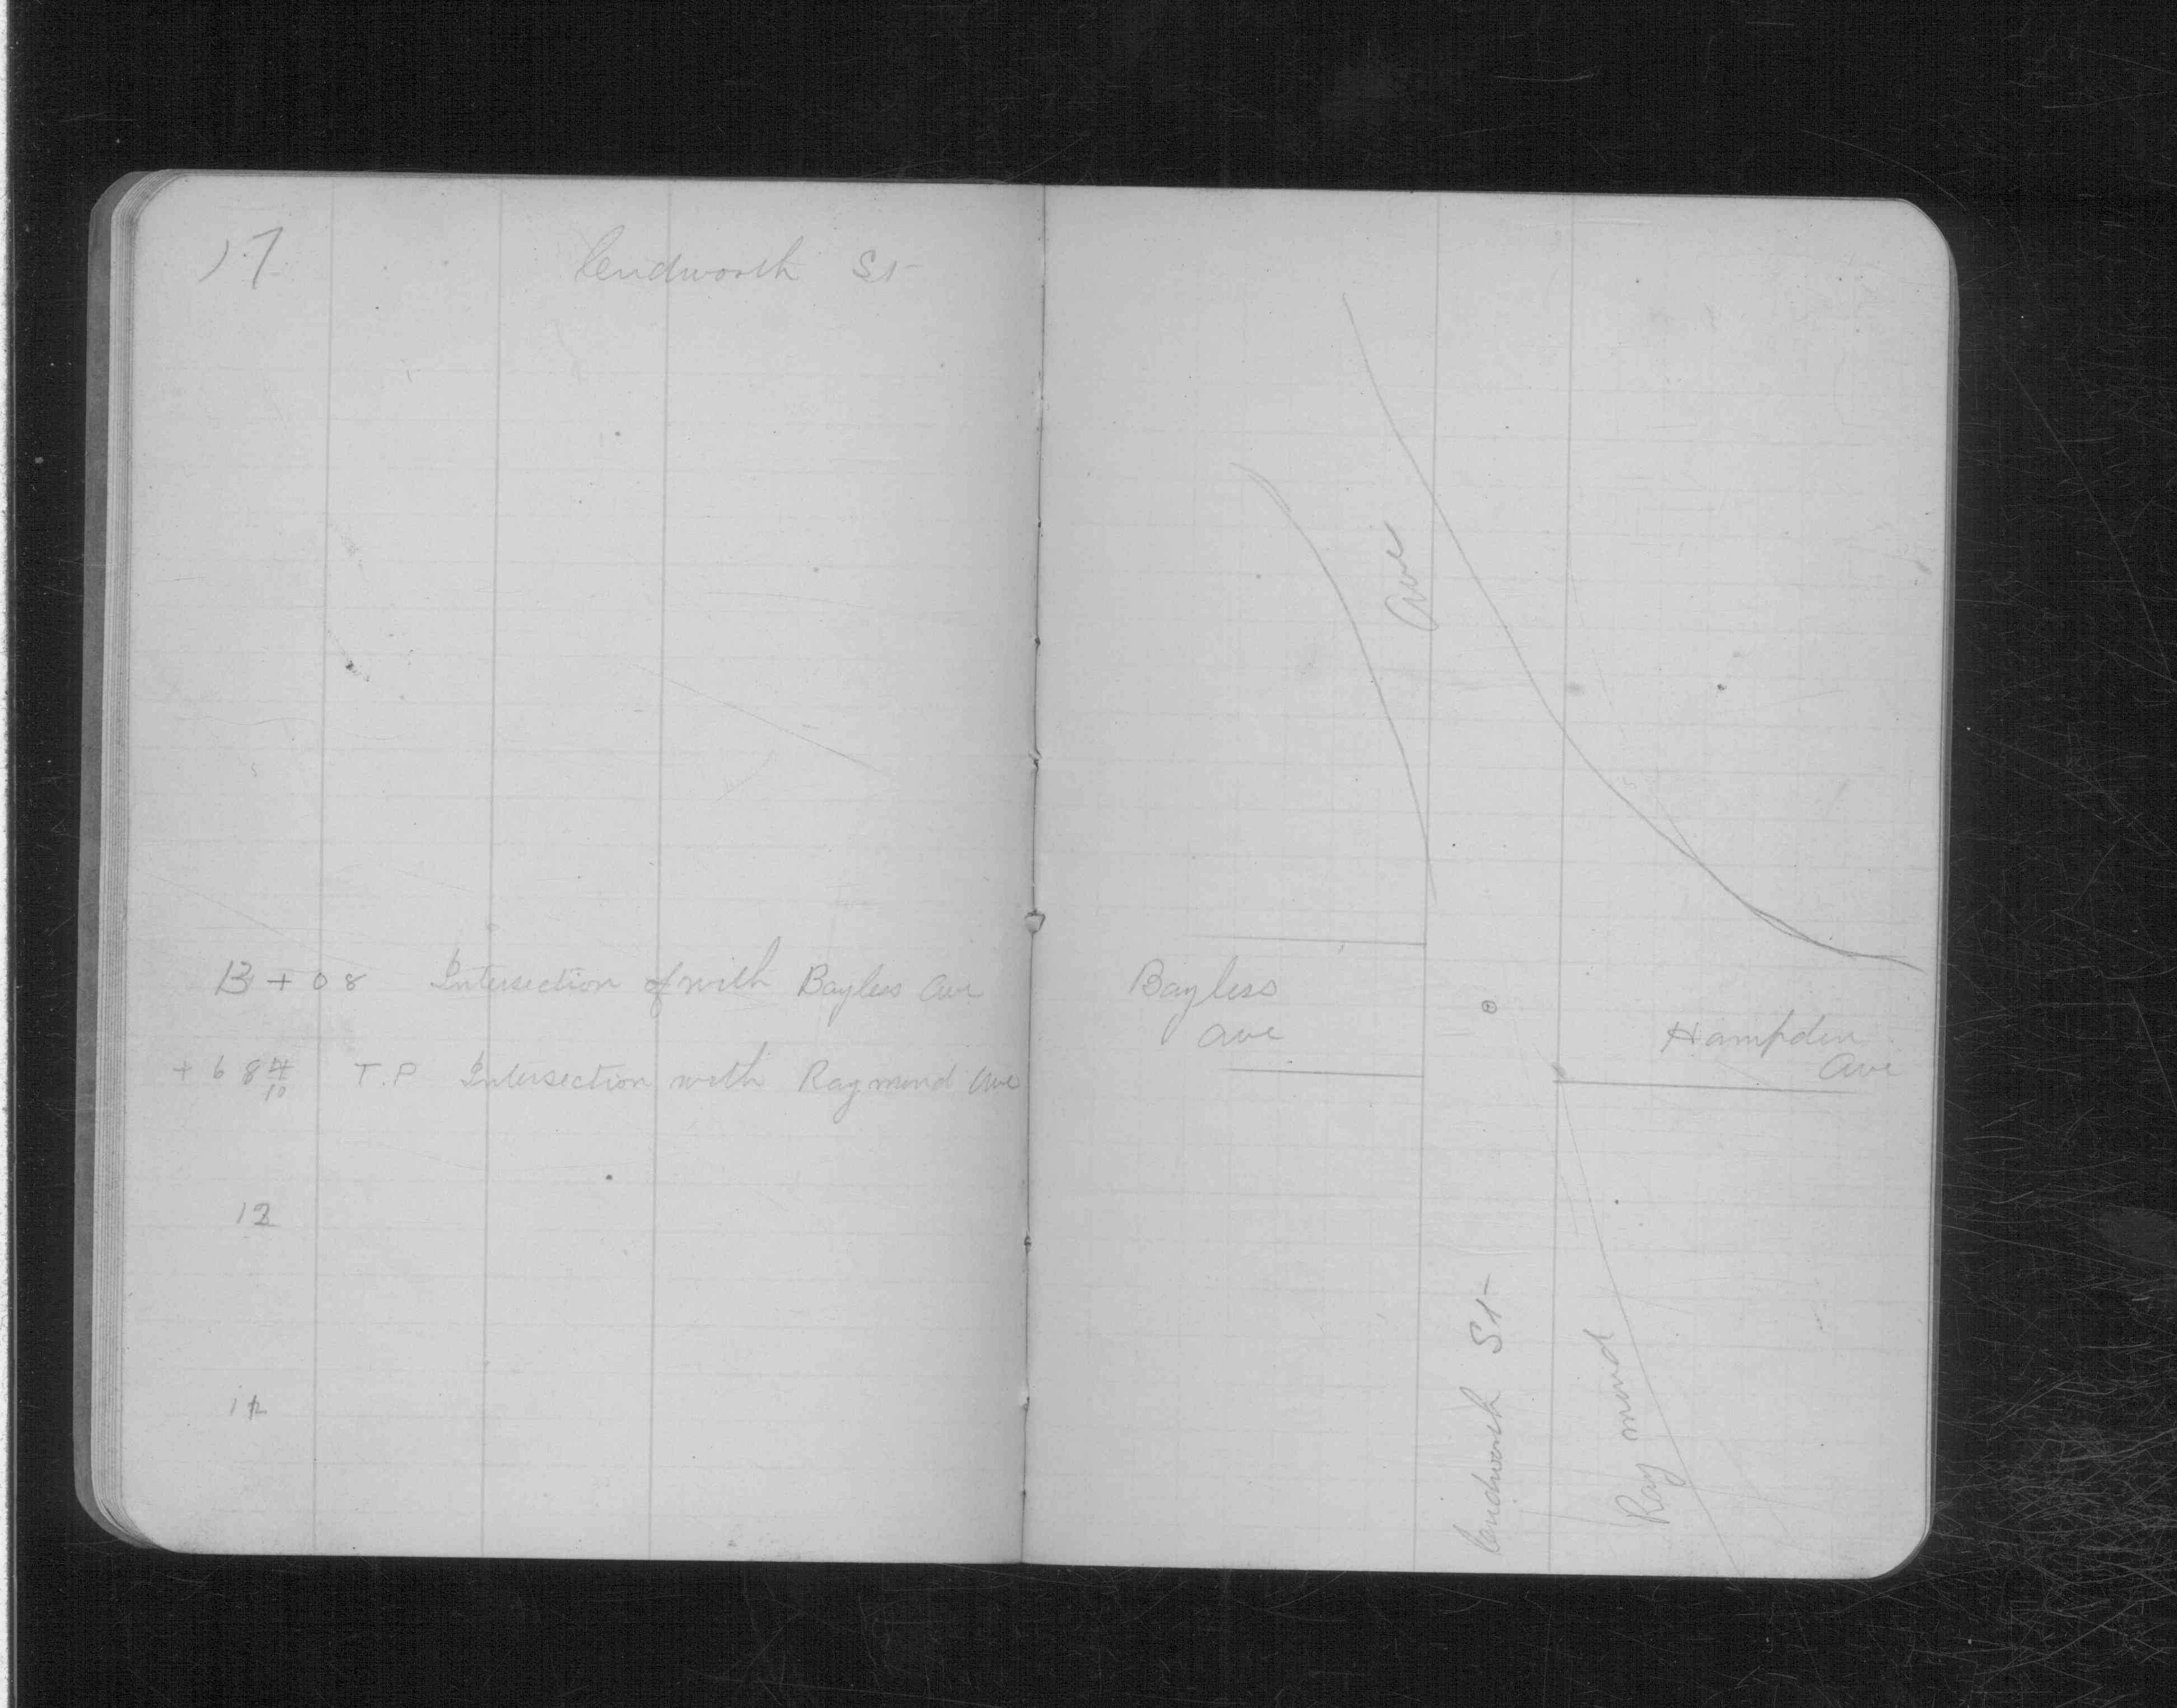 17
Cendworth St
13 + 08 Intersection of with Bayless Ave
+ 68 4/10 T.P Intersection with Raymond Ave
12
Ave
Bayless
Ave
Hampden
Ave
Cendworth St
Raymond